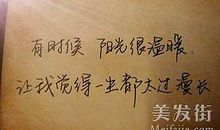 有时候 阳光很温暖
让我觉得一生都太过漫长
美发街
Meifajie.com